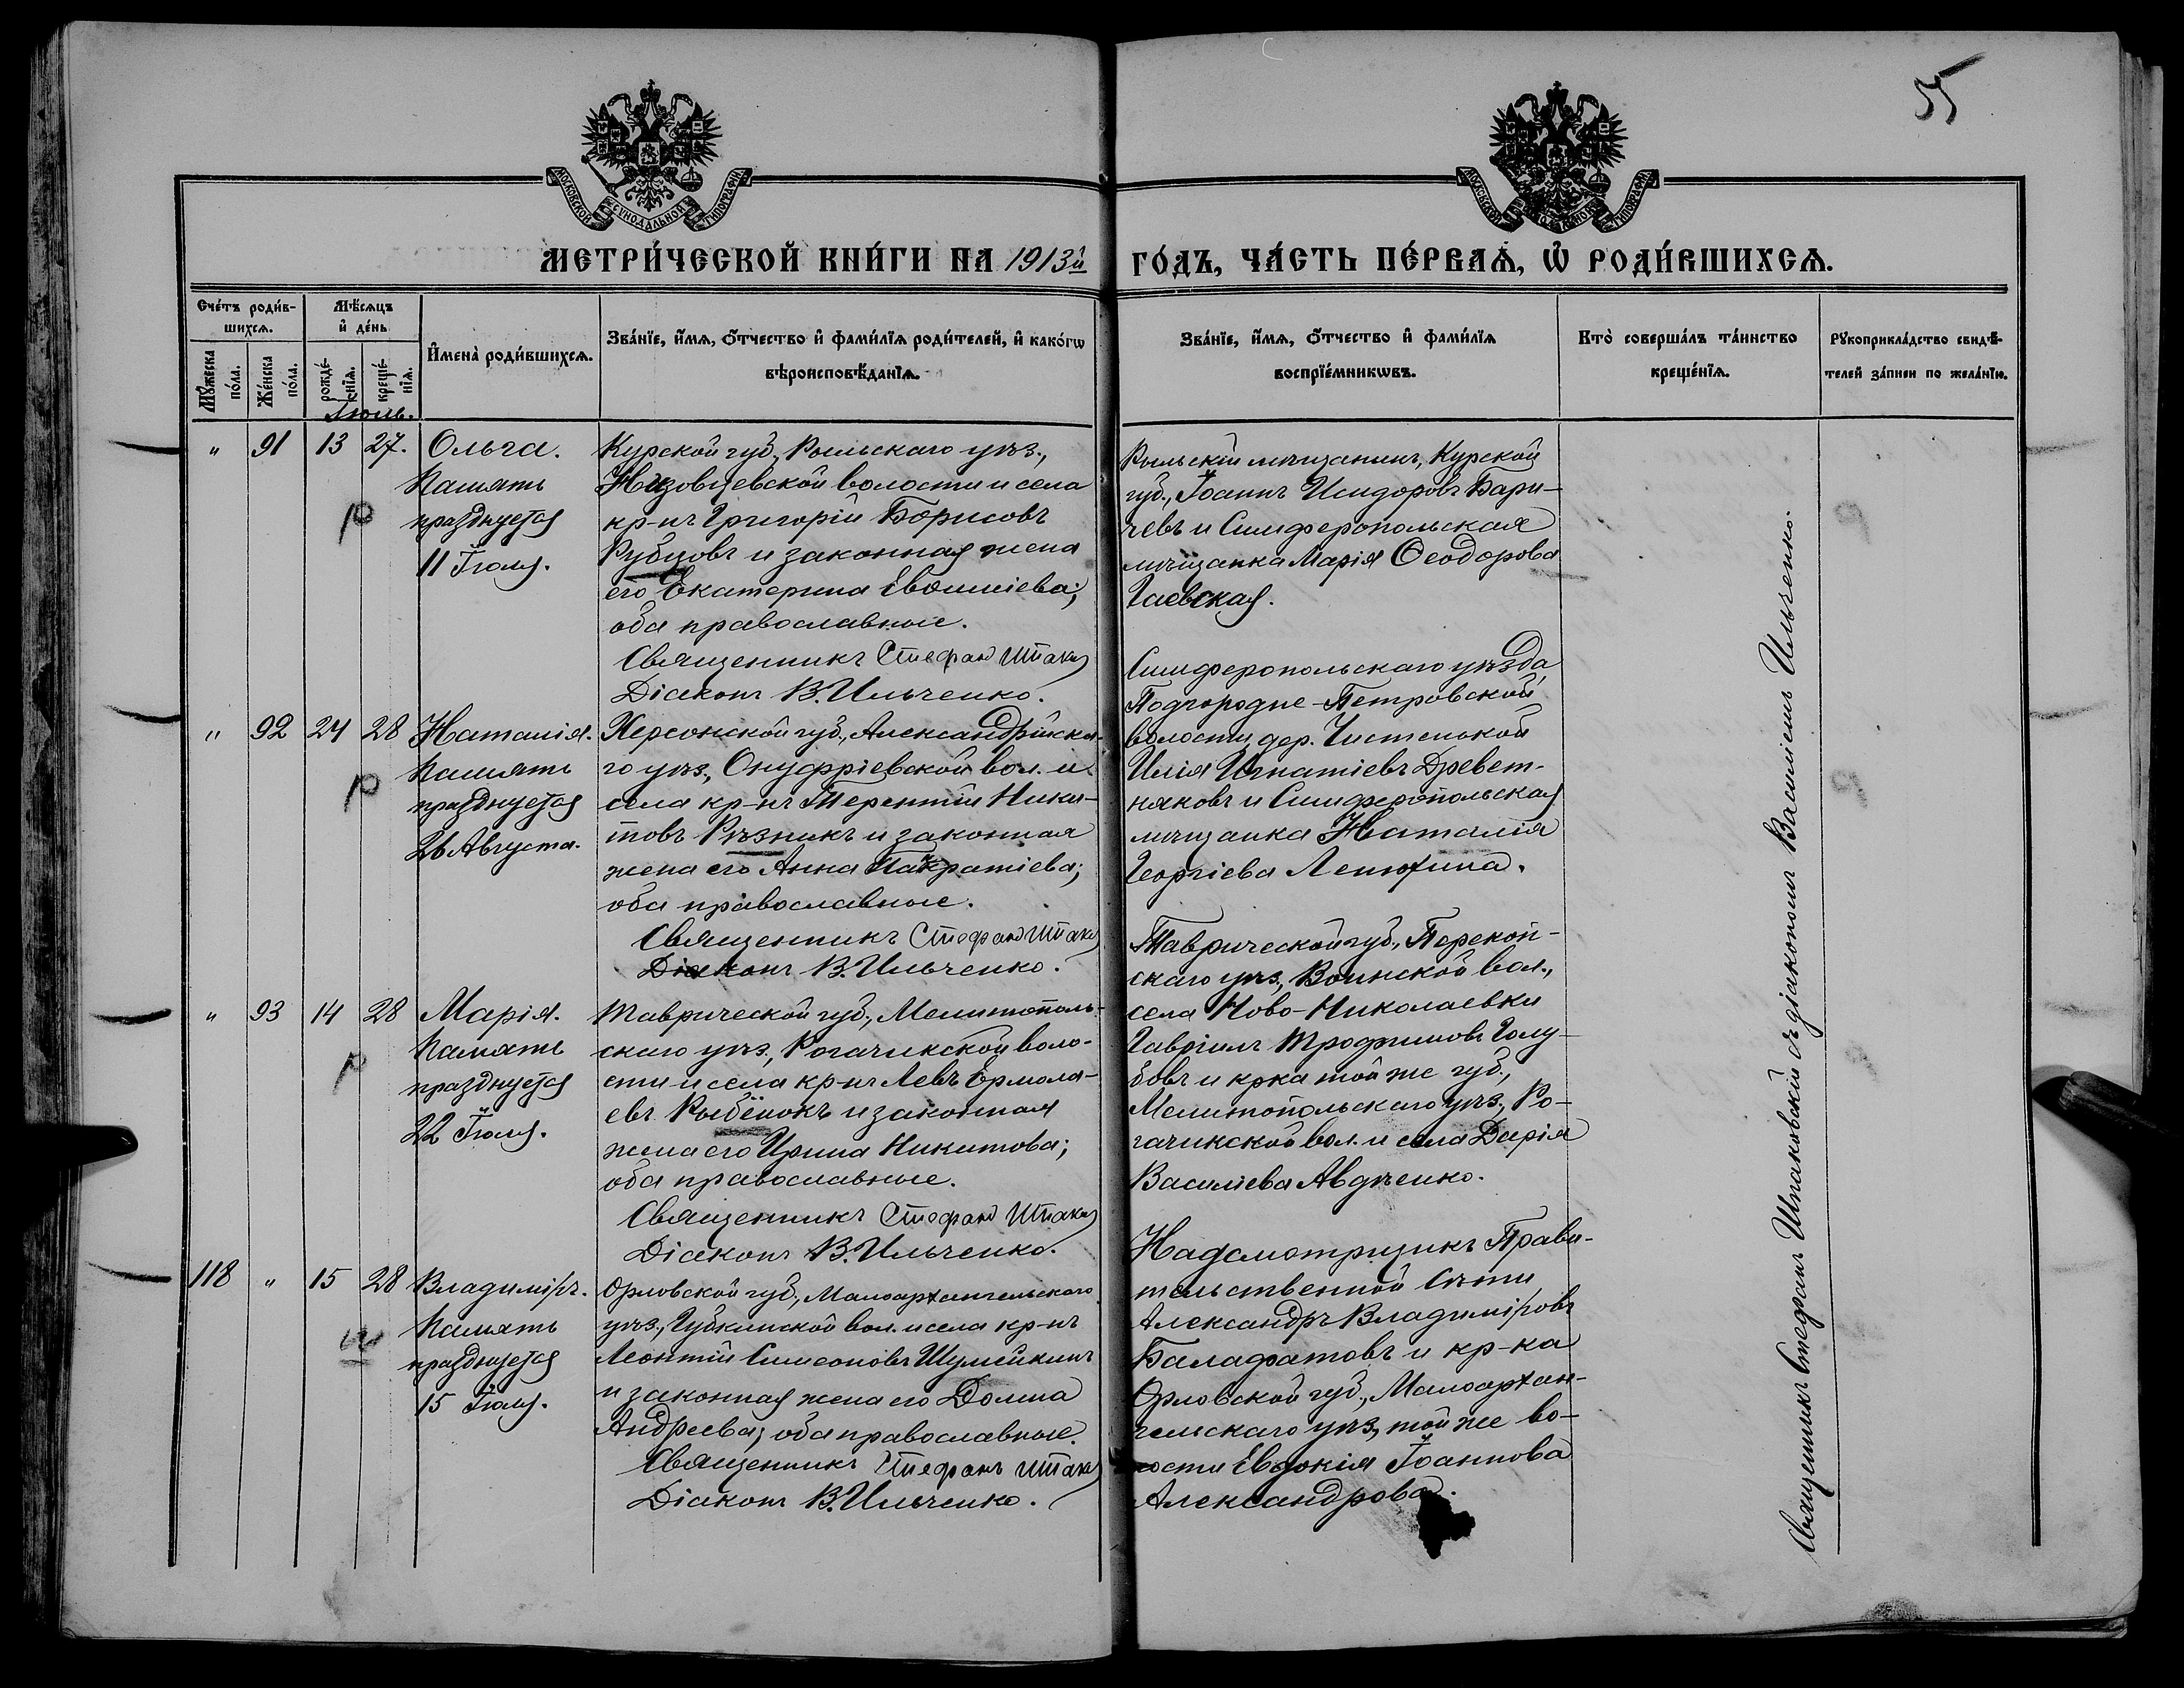 55
МОСКОВСКОЙ СѴНОДАЛЬНОЙ ТИПОГРАФІИ
МОСКОВСКОЙ СѴНОДАЛЬНОЙ ТИПОГРАФІИ
МЕТРИ́ЧЕСКОЙ КНИ́ГИ НА 1913й
ГО́ДЪ, ЧА́СТЬ ПЕ́РВАѦ, Ѡ҆ РОДИ́ВШИХСѦ.
Сче́тъ роди́в-
шихсѧ.
Мꙋ́жеска по́ла.
Же́нска по́ла.
Мѣ́сѧцъ
и҆ де́нь
рожде́-
нїѧ.
креще́-
нїѧ.
И҆мена̀ роди́вшихсѧ.
Зва́нїе, и҆́мѧ, ѻ҆́тчество и҆ фами́лїѧ роди́телей, и҆ како́гѡ
вѣроисповѣ́данїѧ.
Зва́нїе, и҆́мѧ, ѻ҆́тчество и҆ фами́лїѧ
воспрїе́мникѡвъ.
Кто̀ соверша́лъ та́инство
креще́нїѧ.
Рꙋкоприкла́дство свидѣ́-
телей за́писи по жела́нїю.
Іюль.
" 91 13 27. Ольга.
Память
празднуется
11 Іюля.
Курской губ., Рыльскаго уѣз.,
Низовцевской волости и села
кр-нъ Григорій Борисовъ
Рубцовъ и законная жена
его Екатерина Евѳиміева;
оба православные.
Священникъ Стефан Шпак
Діаконъ В. Ильченко.
Рыльскій мѣщанинъ, Курской
губ., Іоаннъ Исидоровъ Бари-
чевъ и Симферопольская
мѣщанка Марія Ѳеодорова
Гаевская.
" 92 24 28 Наталія.
Память
празднуется
26 Августа.
Херсонской губ., Александрійска-
го уѣз., Онуфріевской вол. и
села кр-нъ Терентій Ники-
товъ Рѣзникъ и законная
жена его Анна Панкратіева;
оба православные.
Священникъ Стефан Шпак
Діаконъ В. Ильченко.
Симферопольскаго уѣзда,
Подгородне-Петровской
волости, дер. Чистенькой
Илія Игнатіевъ Древет-
няковъ и Симферопольская
мѣщанка Наталія
Георгіева Ленютина.
" 93 14 28 Марія.
Память
празднуется
22 Іюля.
Таврической губ., Мелитополь-
скаго уѣз., Рогачикской воло-
сти и села кр-нъ Левъ Ермола-
евъ Рыбёнокъ и законная
жена его Ирина Никитова;
оба православные.
Священникъ Стефан Шпак
Діаконъ В. Ильченко.
Таврической губ., Перекоп-
скаго уѣз., Воинской вол.,
села Ново-Николаевки
Гавріилъ Трофимовъ Голу-
бовъ и кр-ка той же губ.,
Мелитопольскаго уѣз., Ро-
гачикской вол. и села Дарія
Василіева Авдѣенко.
118 " 15 28 Владиміръ.
Память
празднуется
15 Іюля.
Орловской губ., Малоархангельскаго
уѣз., Губкинской вол. и села кр-нъ
Леонтій Симеоновъ Шумейкинъ
и законная жена его Домна
Андреева; оба православные.
Священникъ Стефанъ Шпак
Діаконъ В. Ильченко.
Надсмотрщикъ Прави-
тельственной Сѣти
Александръ Владиміровъ
Балафатовъ и кр-ка
Орловской губ., Малоархан-
гельскаго уѣз., той же во-
лости Евдокія Іоаннова
Александрова.
Священникъ Стефанъ Шпаковскій съ діакономъ Василіемъ Ильченко.